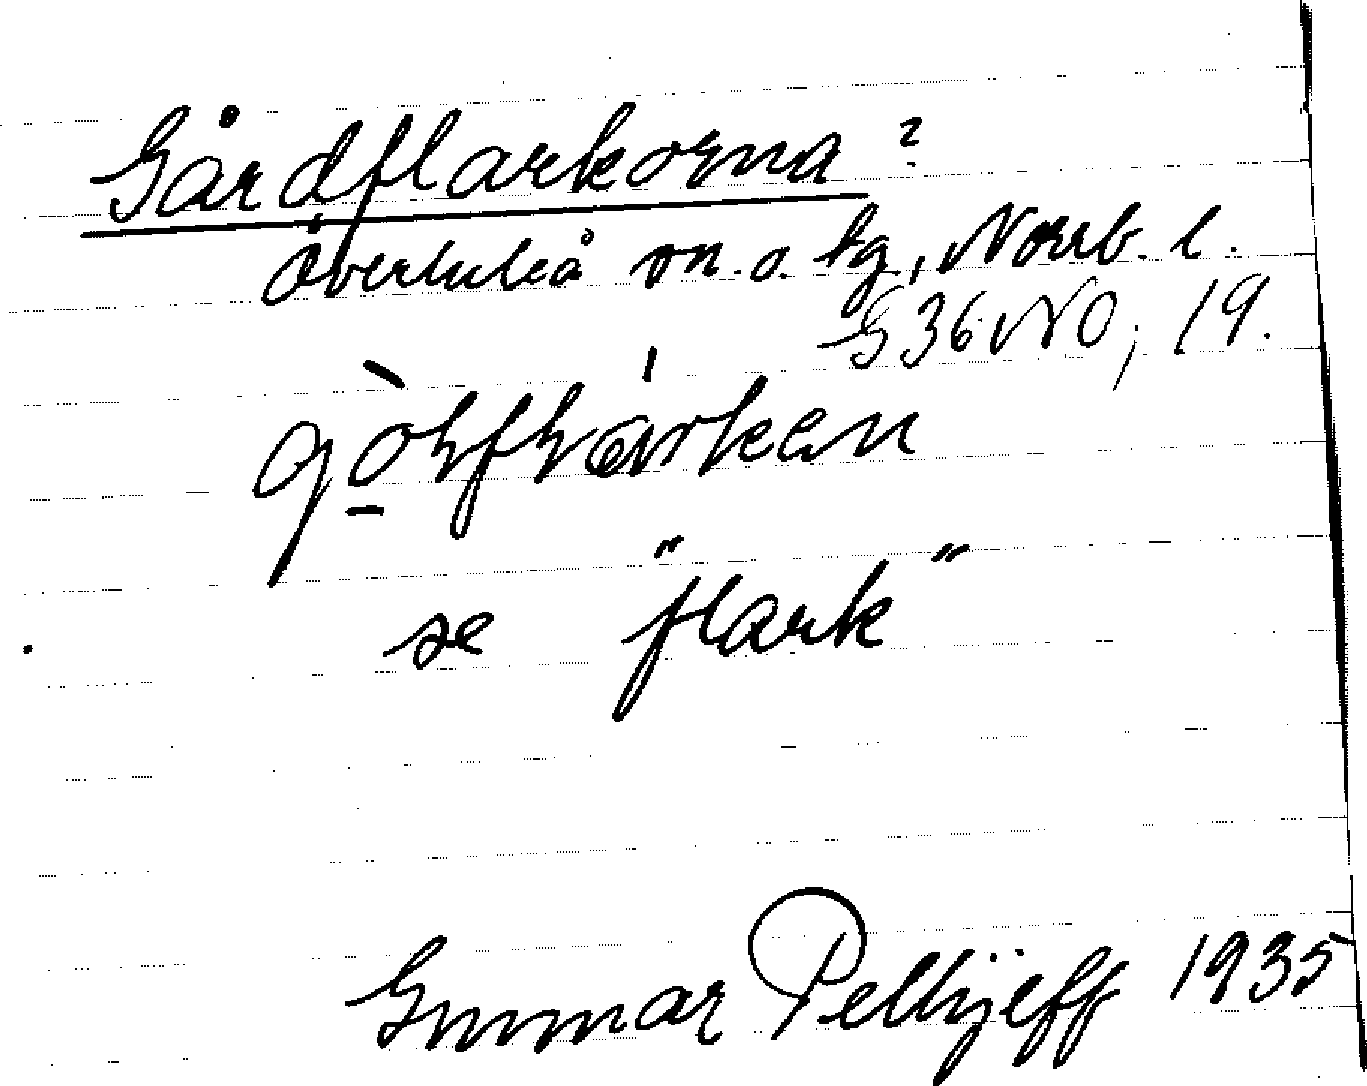 Gårdflarkorna ?
Överluleå sn. o. kg, Norrb. l.
G 36 NO, 19.
se "flark"
Gunnar Pellijeff 1935